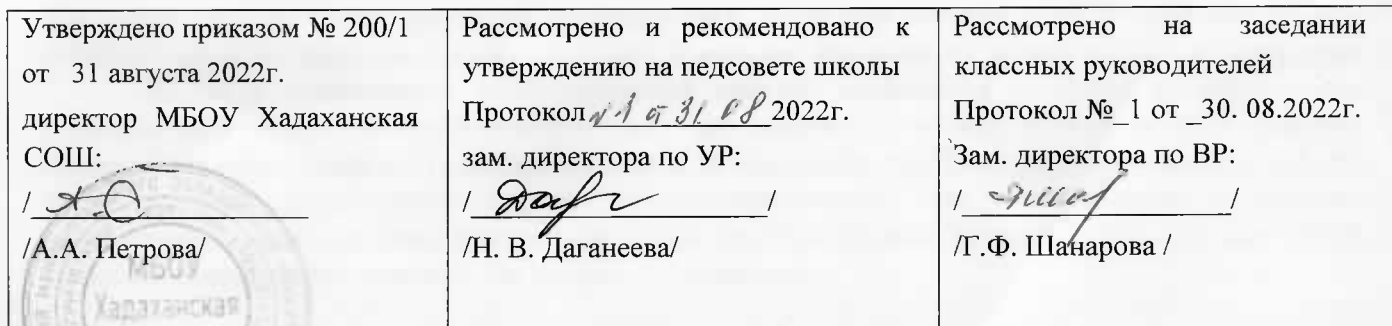 Утверждено приказом № 200/1
от 31 августа 2022г.
директор МБОУ Хадаханская
СОШ:
/
/А.А. Петрова/
МБОУ
Хадаханская
Рассмотрено и рекомендовано к
утверждению на педсовете школы
Протокол №1 от 31 08 2022г.
зам. директора по УР:
/ /
/Н. В. Даганеева/
Рассмотрено на заседании
классных руководителей
Протокол №_1 от _30. 08.2022г.
Зам. директора по ВР:
/ /
/Г.Ф. Шанарова /